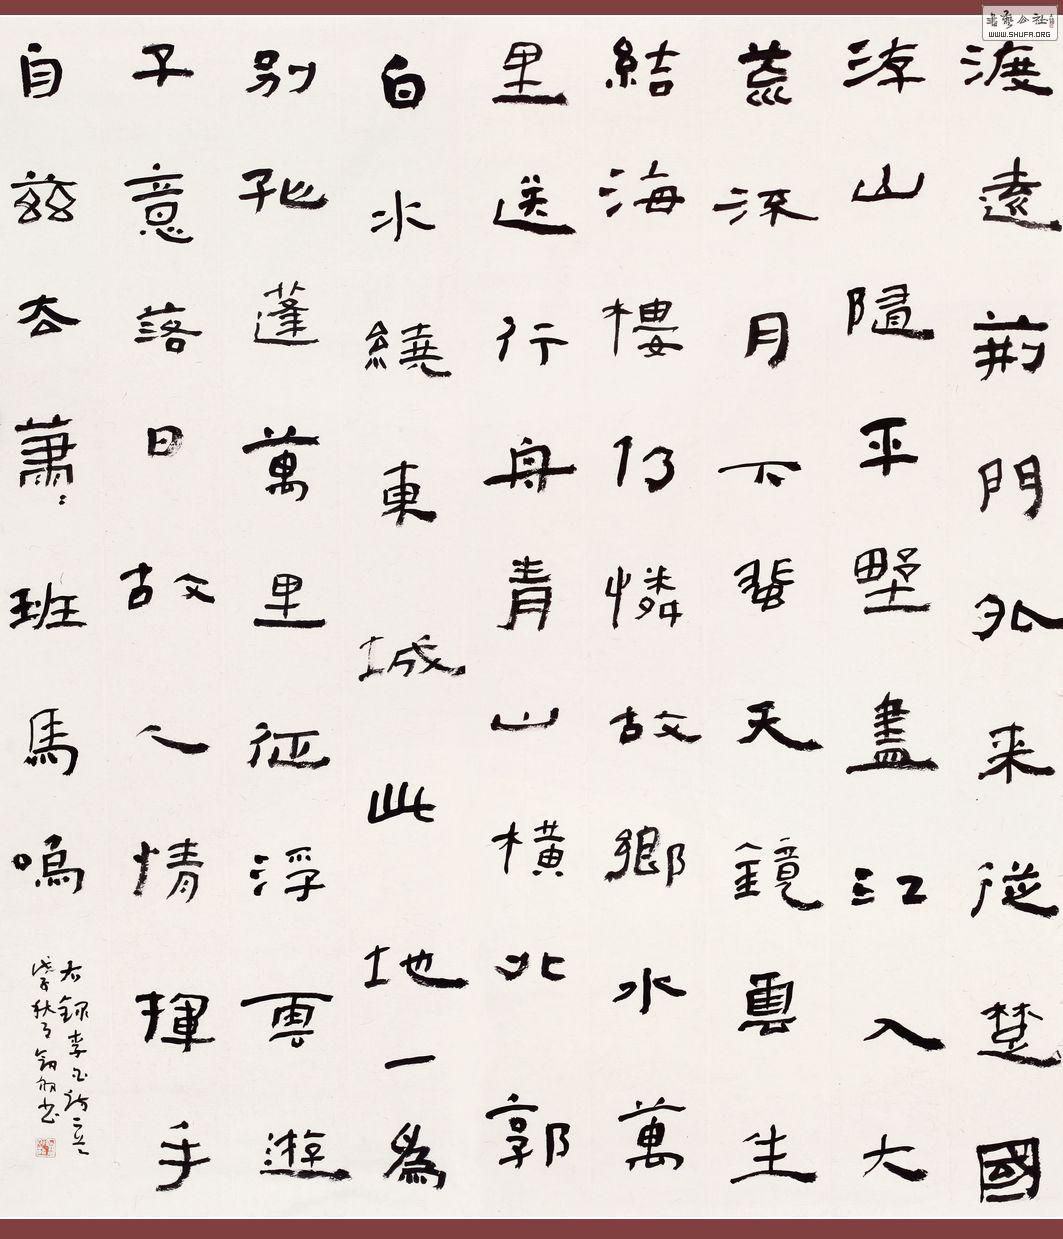 渡遠荊門外来從楚國
游山隨平墅盡江入大
荒流月下飛天鏡雲生
結海樓仍憐故鄉水萬
里送行舟青山橫北郭
白水繞東城此地一為
別孤蓬萬里征浮雲遊
子意落日故人情揮手
自茲去蕭〻班馬鳴
右錄李白詩二首
戊子秋月書
書藝公社
WWW.SHUFA.ORG